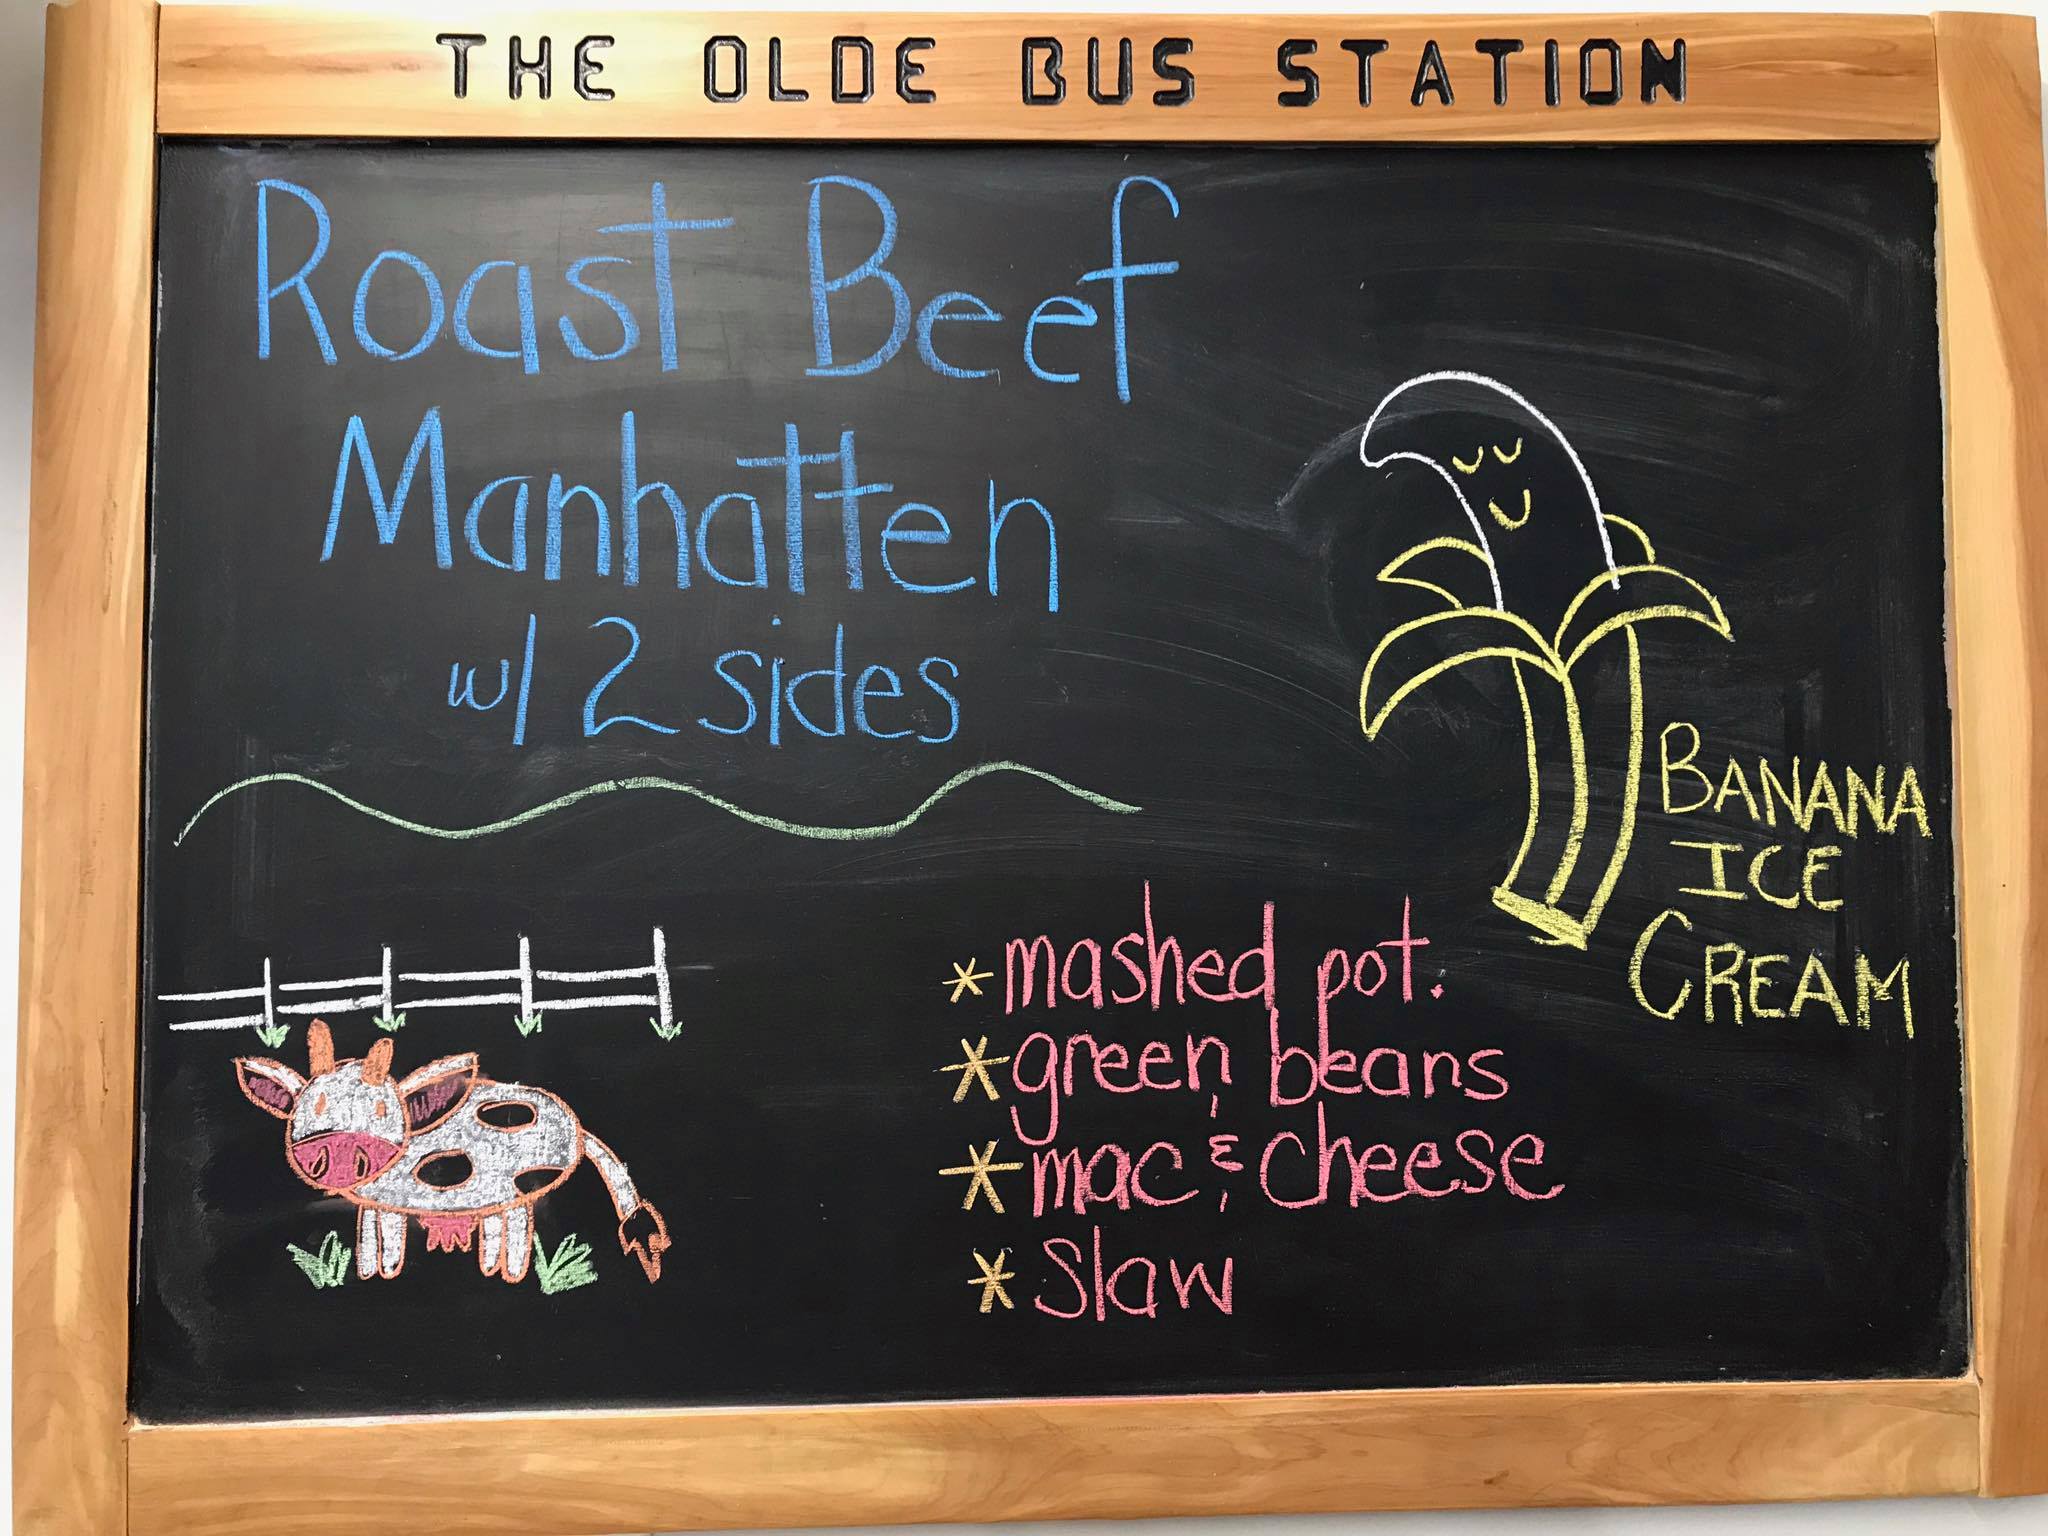 THE OLDE BUS STATION
Roast Beef
Manhatten
w/ 2 sides
BANANA
ICE
CREAM
* mashed pot.
* green beans
* mac & cheese
* slaw